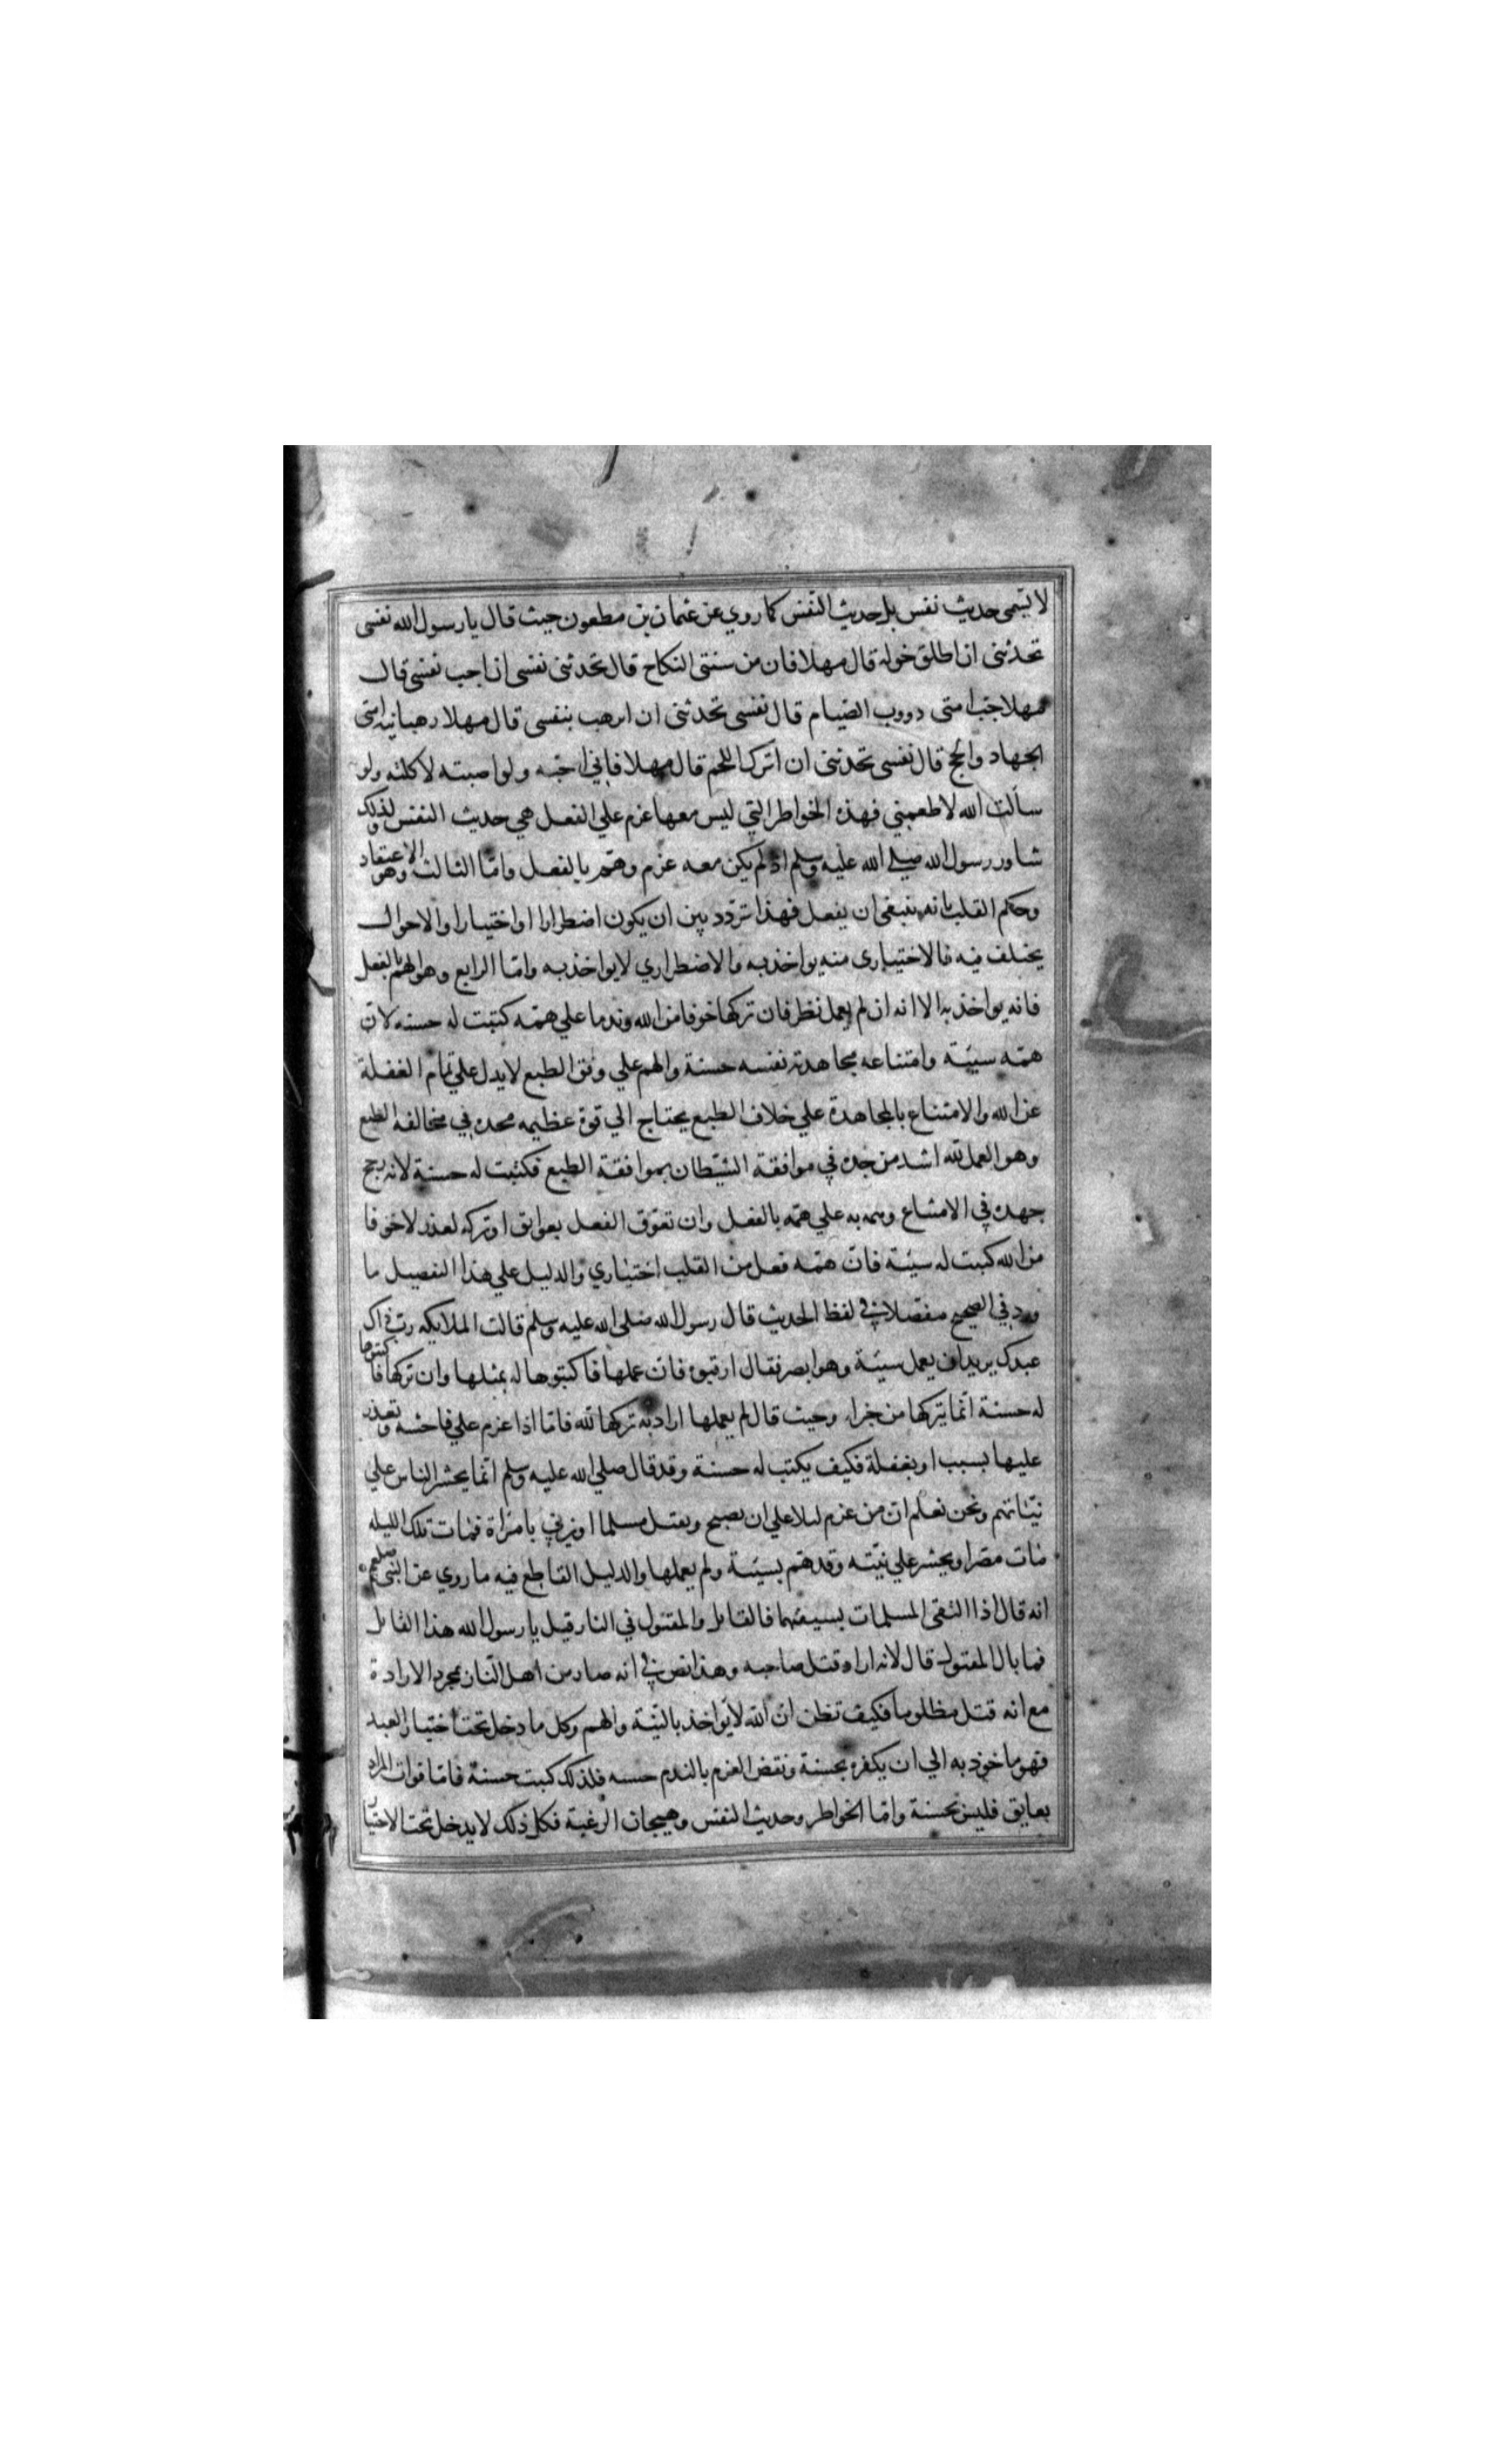 لا يسمى حديث نفس بل حديث النفس كما روي عن عثمان بن مطعون حيث قال يا رسول الله نفسى
تحدثنى ان اطلق خولة قال مهلا فان من سنتى النكاح قال تحدثنى نفسى ان اجب نفسى قال
مهلا خبا امتى دووب الصيام قال نفسى تحدثنى ان اترهب بنفسى قال مهلا رهبانيه امتى
الجهاد والحج قال نفسى تحدثنى ان اترك اللحم قال مهلا فاني احبه ولو اصبته لاكلته ولو
سألت الله لاطعمني فهذه الخواطر التي ليس معها عزم علي الفعل هي حديث النفس ولذلك
شاور رسول الله صلي الله عليه وسلم اذ لم يكن معه عزم وهم بالفعل واما الثالث وهو الاعتقاد
وحكم القلب بانه ينبغى ان يفعل فهذا تردد بين ان يكون اضطرارا او اختيارا والاحوال
يختلف فيه فالاختيارى منه يواخذ به والاضطراري لا يواخذ به واما الرابع وهو الهم بالفعل
فانه يواخذ به الا انه ان لم يعمل نظر فان تركها خوفا من الله وندما علي همه كتبت له حسنه لان
همه سيئة وامتناعه مجاهدة نفسه حسنة والهم علي وفق الطبع لا يدل علي تمام الغفلة
عن الله والامتناع بالمجاهدة علي خلاف الطبع يحتاج الي قوة عظيمه فجده في مخالفه الطبع
وهو العمل لله اشد من جده في موافقة الشيطان بموافقة الطبع فكتبت له حسنة لانه رجح
جهده في الامتناع وهمه به علي همه بالفعل وان تعوق الفعل بعوايق او تركه لعذر لا خوفا
من الله كتبت له سيئة فان همه فعل من القلب اختياري والدليل علي هذا التفصيل ما
ورد في الصحيح مفصلا في لفظ الحديث قال رسول الله صلى الله عليه وسلم قالت الملايكه رب ذاك
عبدك يريد ان يعمل سيئة وهو ابصر فقال ارقبوه فان عملها فاكتبوها له بمثلها وان تركها فاكتبوها
له حسنة انما يتركها من جراء وحيث قال لم يعملها اراد به تركها لله فاما اذا عزم علي فاحشه وتعذر
عليها بسبب او بغفلة فكيف يكتب له حسنة وقد قال صلي الله عليه وسلم انما يحشر الناس علي
نيّاتهم ونحن نعلم ان من عزم ليلا علي ان يصبح ويقتل مسلما او يزني بامراة فمات تلك الليله
مات مصرا ويحشر علي نيته وقد هم بسيئة ولم يعملها والدليل القاطع فيه ما روي عن النبى صلعم
انه قال اذا التقى المسلمات بسيفهما فالقاتل والمقتول في النار قيل يا رسول الله هذا القاتل
فما بال المقتول قال لانه اراد قتل صاحبه وهذا نص في انه صار من اهل النار بمجرد الارادة
مع انه قتل مظلوما فكيف تظن ان الله لا يواخذ بالنية والهم وكل ما دخل تحت اختيار العبد
فهو ماخوذ به الي ان يكفره بحسنة ونقض العزم بالندم حسنه فلذلك كتبت حسنة فاما فوات المراد
بعايق فليس بحسنة واما الخواطر وحديث النفس وهيجان الرغبة فكل ذلك لا يدخل تحت الاختيار